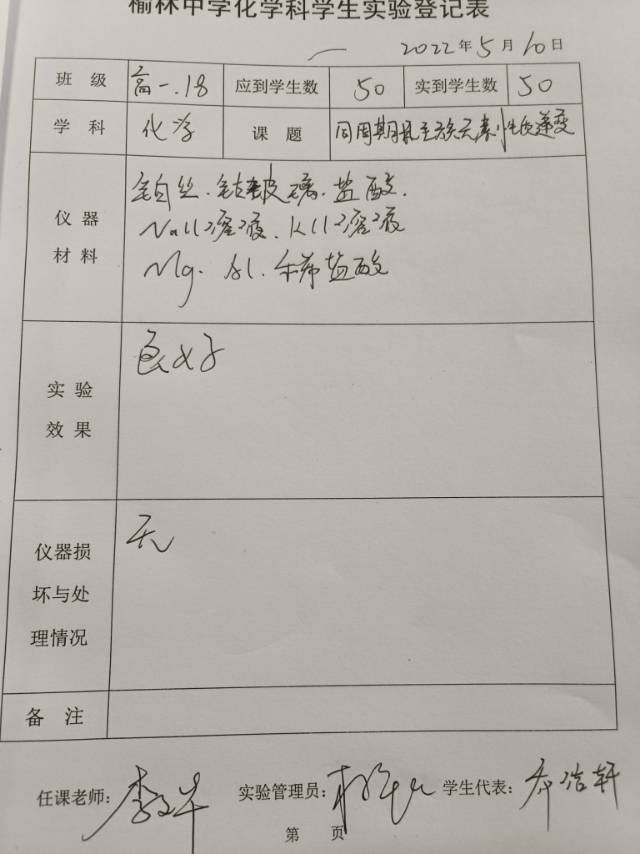 榆林中学化学科学生实验登记表
2022年5月10日
班 级 高一.18 应到学生数 50 实到学生数 50
学 科 化学 课 题 同周期 主族元素性质递变
仪器材料
铂丝.钴玻璃.盐酸.
NaCl溶液.KCl溶液
Mg. Al. 稀盐酸
实验效果
良好
仪器损坏与处理情况
无
备 注
任课老师: 实验管理员: 学生代表:
第 页